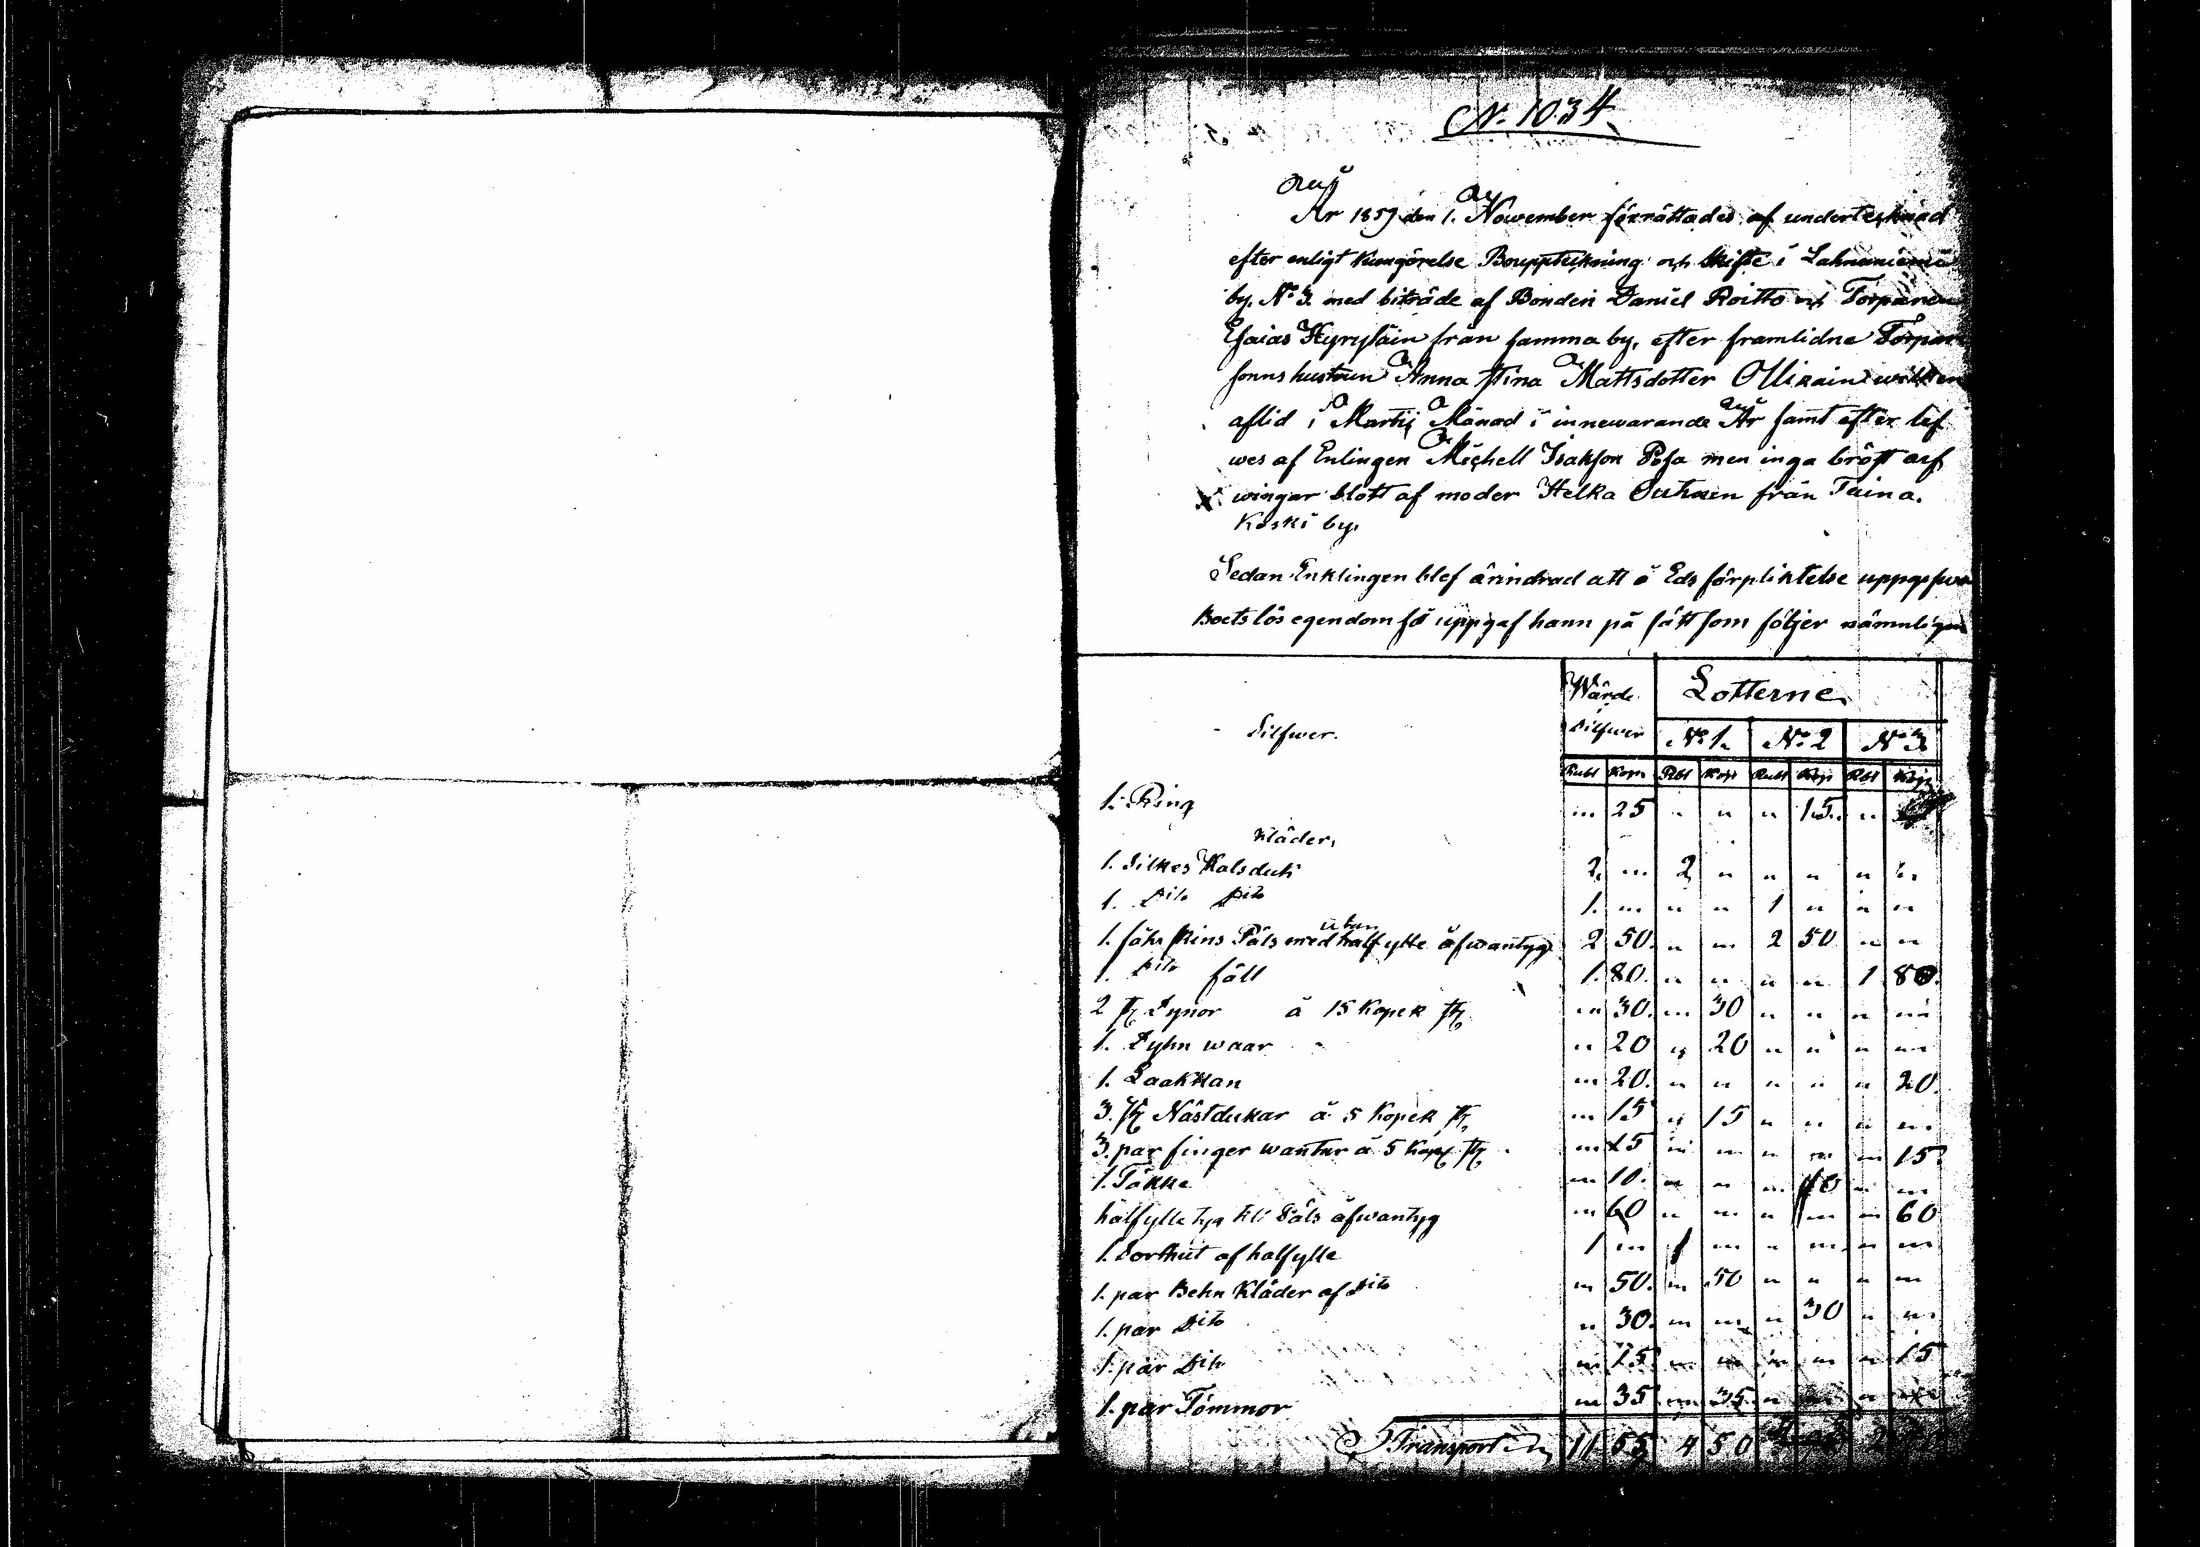 N. 1034
År 1859 den 1. November förrättades af undertecknad
efter enligt Kungörelse Bouppteckning och Skifte i Lahnaniemi
by, No 3. med biträde af Bonden Daniel Roitto och Torparen
Esaias Kyrylain från samma by, efter framlidne Torpare
sonns hustrun Anna Stina Mattsdotter Ollikain wilken
aflid i Martij Månad i innewarande År samt efter lef
wes af Enlingen Michell Isaksson Posa men inga bröst arf
wingar blott af moder Helka från Taina
koski by.
Sedan Enklingen blef ärindrad att å Eds förpliktelse uppgifwa
Boets lös egendom så uppgaf hann på sätt som följer nämnligen
Wärde Lotterne
Silfwer. i Silfwer No 1. No 2 No 3
Rubl Kop Rbl Kop Rubl Kop Rbl Kop
1. Ring " 25 " " " 15 "
Kläder,
1. Silkes Halsduk 2. " 2 " " " " "
1. Dito Dito 1. " " " 1 " " "
utan
1. fåhr skins Päls med halfylle åfwantyg 2 50. " " 2 50 " "
1. Dito fäll 1. 80. " " " " 1 80.
2 st Dynor à 15 Kopek st " 30. " 30 " " " "
1. Dyhn waar " 20 " 20 " " " "
1. Laakkan " 20. " " " " " 20.
3. st Nästdukar à 5 Kopek st " 15 " 15 " " " "
3. par finger wantar à 5 Kop st " 15 " " " " " 15
1. Täkke " 10. " " " 10 " "
halfylle tyg til Päls åfwantyg " 60 " " " " " 60
1. Sorthut af halfylle 1 " 1 " " " " "
1. par Behn Kläder af Dito " 50. " 50 " " " "
1. par Dito " 30. " " " 30 " "
1. par Dito " 15 " " " " " 15
1. par Tömmor " 35 " 35 " " " "
Transport 11 55 4 50